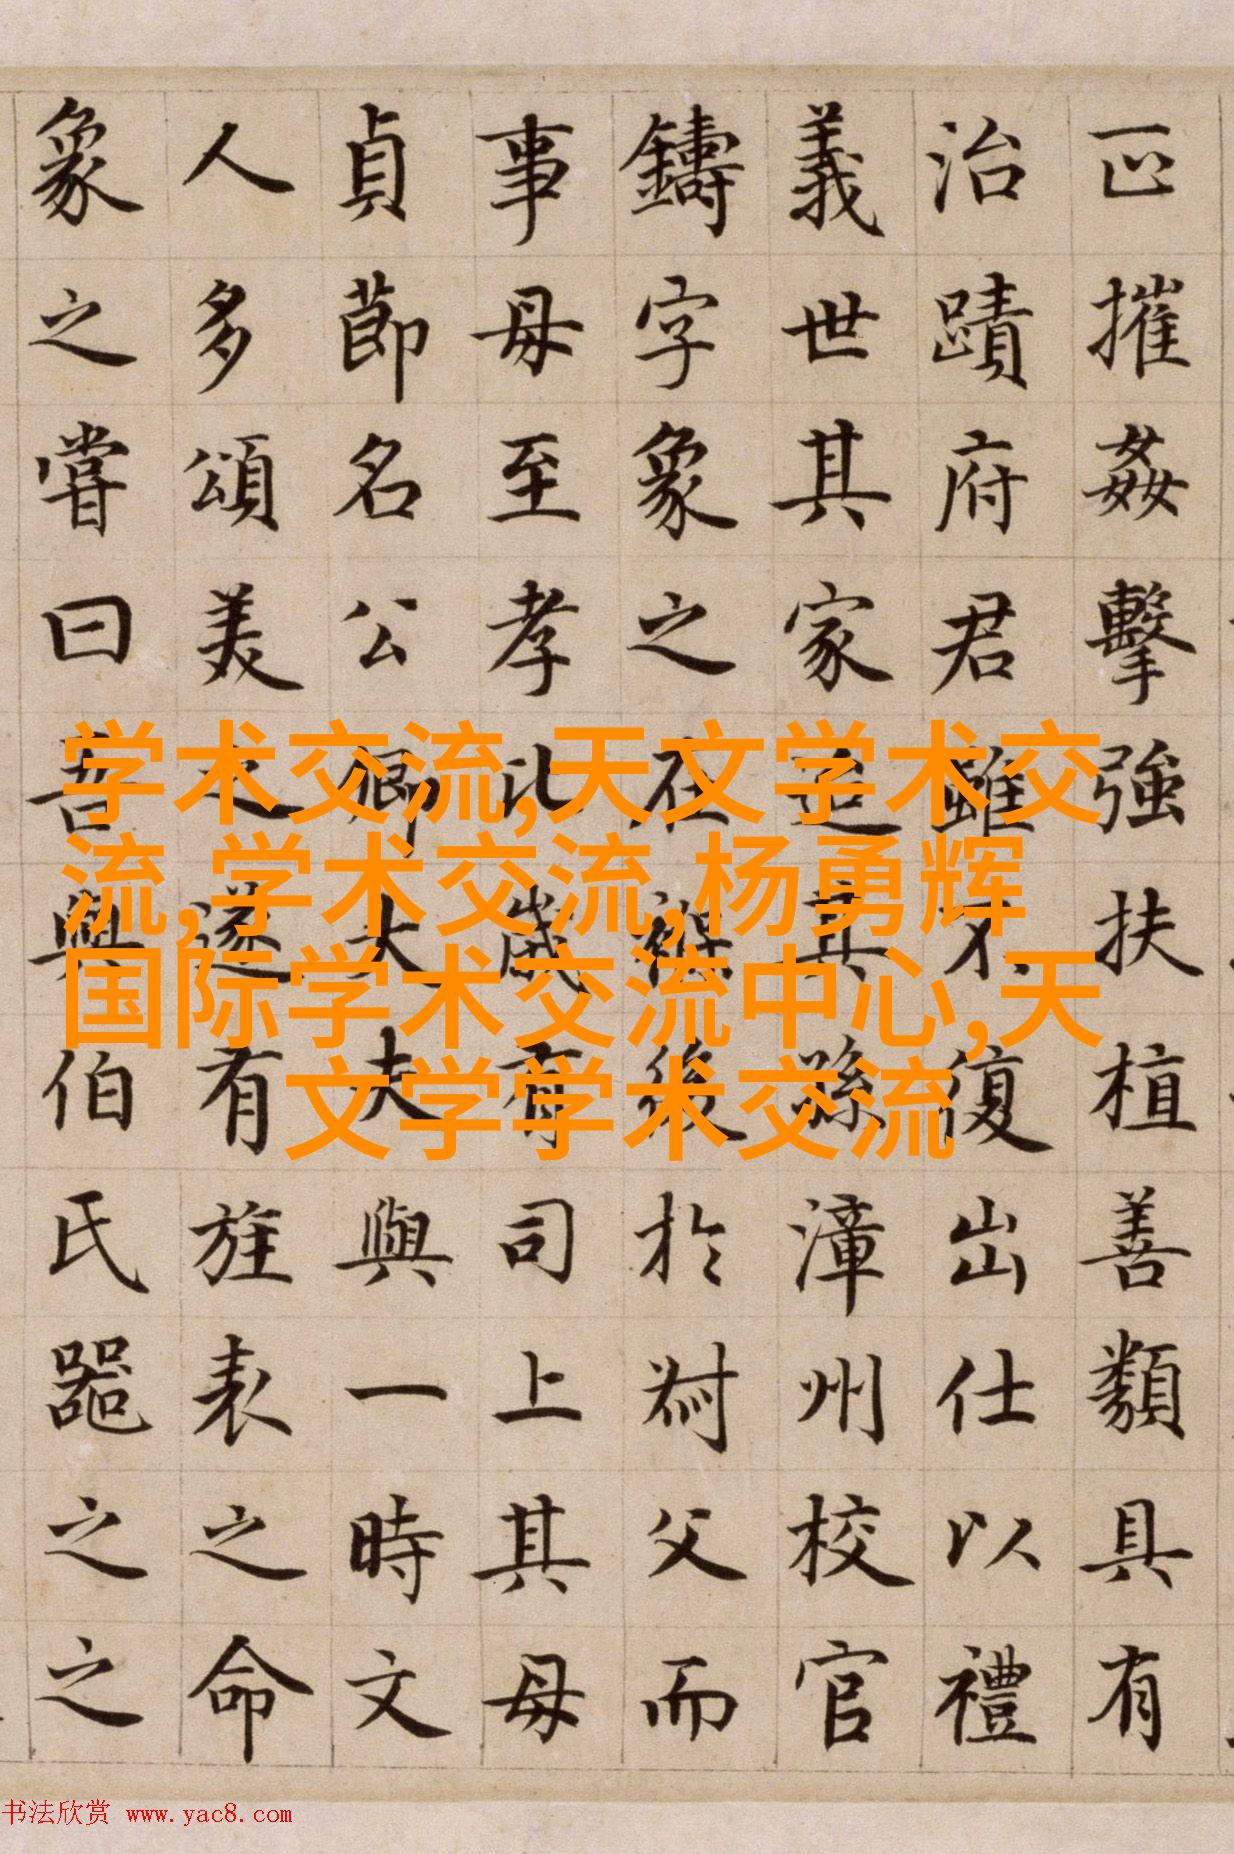 正摧姦擊強扶植善類具有
治蹟府君雖不復出仕以禮
義世其家迨其孫漳州校官
鑄字象之在褓後於叔父而
事母至孝比歲有司上其母
貞節名公卿大夫與一時文
人多頌美之遂有旌表之命
象之嘗曰吾與伯氏器之之
学术交流,天文学术交
流,学术交流,杨勇辉
国际学术交流中心,天
文学学术交流
书法欣赏 www.yac8.com